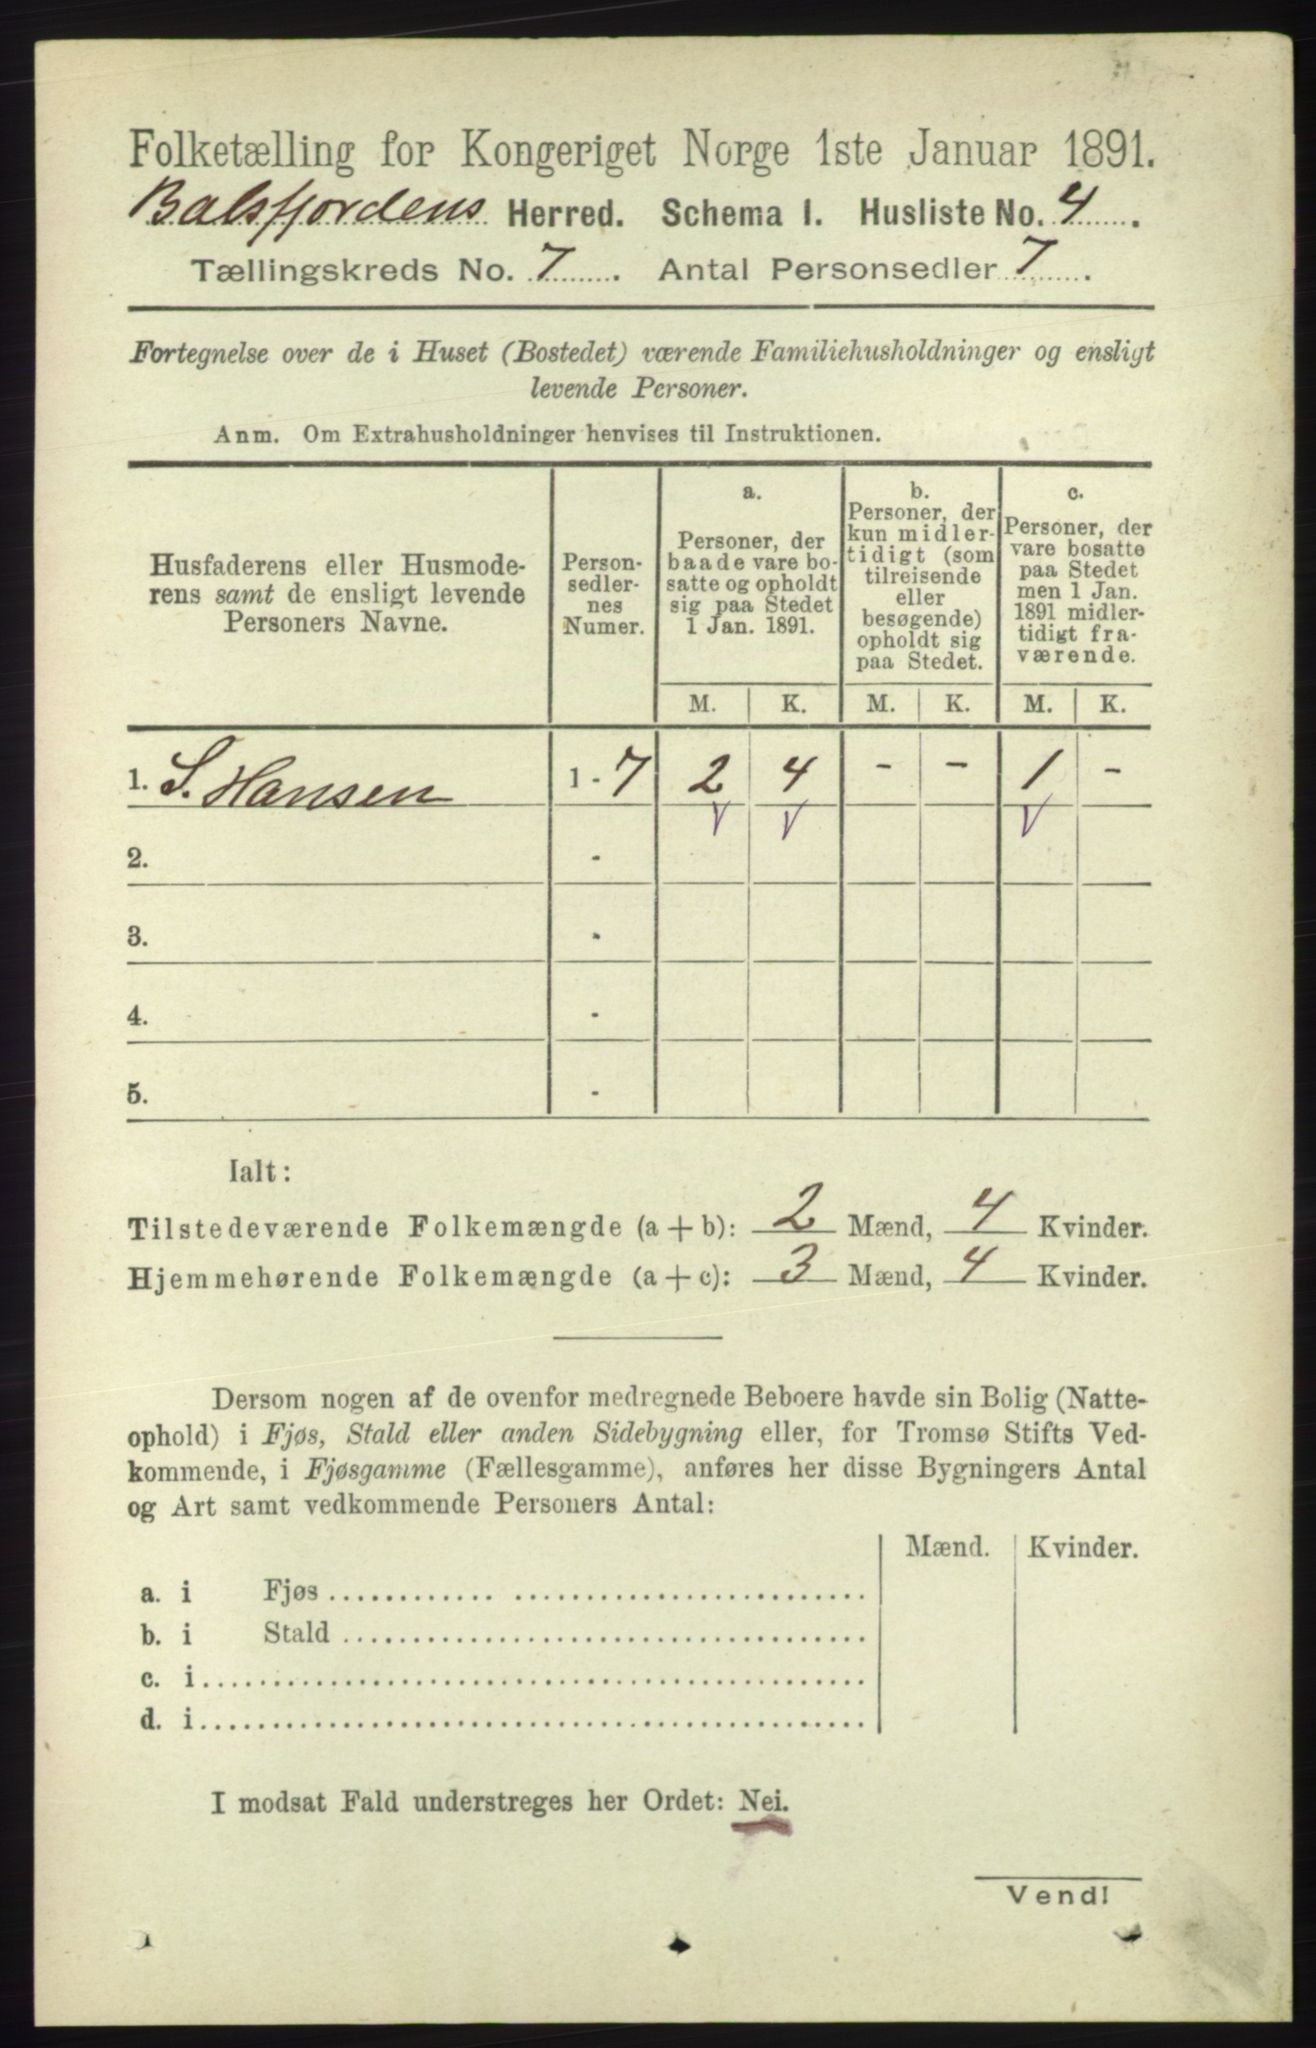 Folketælling for Kongeriget Norge 1ste Januar 1891.
Balsfjordens Herred. Schema 1. Husliste No. 4.
Tællingskreds No. 7. Antal Personsedler 7.
Fortegnelse over de i Huset (Bostedet) værende Familiehusholdninger og ensligt
levende Personer.
Anm. Om Extrahusholdninger henvises til Instruktionen.
Husfaderens eller Husmode-
rens samt de ensligt levende
Personers Navne.
Person-
sedler-
nes
Numer.
a.
Personer, der
baade vare bo-
satte og opholdt
sig paa Stedet
1 Jan. 1891.
b.
Personer, der
kun midler-
tidigt (som
tilreisende
eller
besøgende)
opholdt sig
paa Stedet.
c.
Personer, der
vare bosatte
paa Stedet
men 1 Jan.
1891 midler-
tidigt fra-
værende.
M. K. M. K. M. K.
1. S. Hansen 1 - 7 2 4 - - 1 -
2. -
3. -
4. -
5. -
Ialt:
Tilstedeværende Folkemængde (a + b): 2 Mænd, 4 Kvinder.
Hjemmehørende Folkemængde (a + c): 3 Mænd, 4 Kvinder.
Dersom nogen af de ovenfor medregnede Beboere havde sin Bolig (Natte-
ophold) i Fjøs, Stald eller anden Sidebygning eller, for Tromsø Stifts Ved-
kommende, i Fjøsgamme (Fællesgamme), anføres her disse Bygningers Antal
og Art samt vedkommende Personers Antal:
Mænd. Kvinder.
a. i Fjøs
b. i Stald
c. i
d. i
I modsat Fald understreges her Ordet: Nei.
Vend!